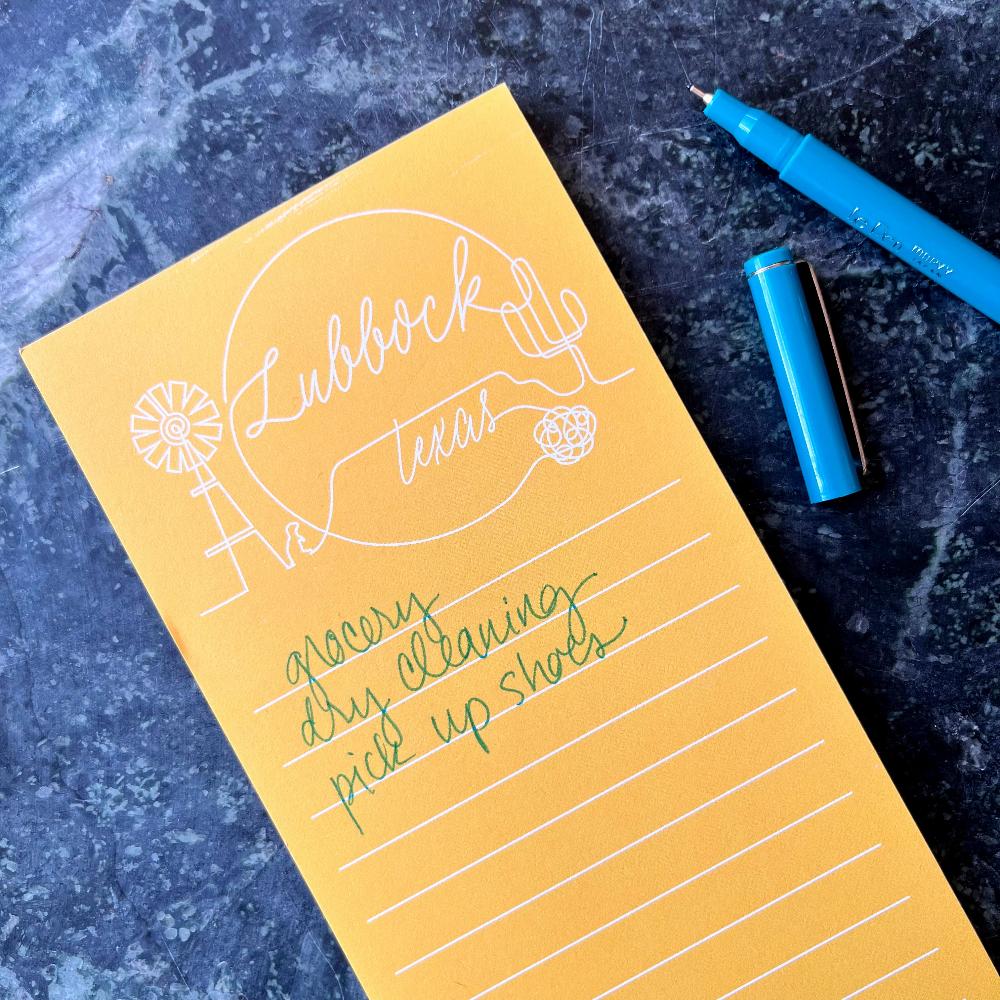 Lubbock
texas
grocery
dry cleaning
pick up shoes
Le Pen MARVY